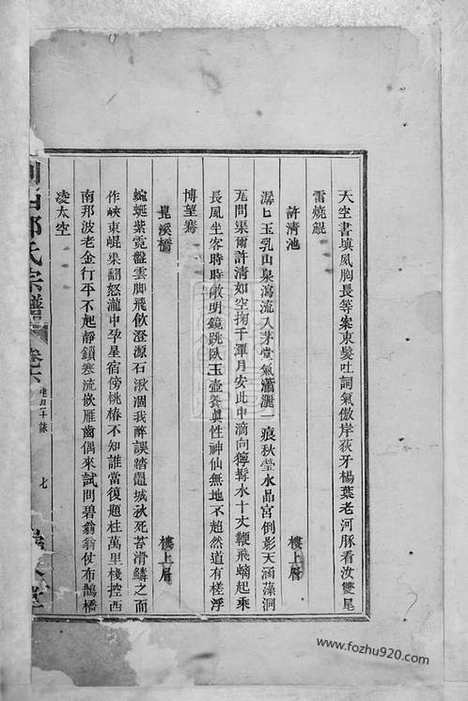 天空書填風胸長等案東髮吐詞氣傲岸荻牙楊葉老河豚看汝雙尾
雷燒鯤
許清池 樓上層
潺匕玉乳山泉瀉流入茅堂氣瀟灑一痕秋瑩水晶宮倒影天涵藻洞
尫問渠爾許清如空掬千潭月安此中滴向獰髯水十丈鞭飛螭起乘
長風坐客時時敞明鏡跳臥玉壺養眞性神仙無地不超然道有槎浮
博望騫
晁溪橋 樓上層
蜿蜒紫霓盤雲脚飛飲澄源石湫涸我醉誤踏黿城狄死苔滑鱗之而
作峽東崐渠翻怒瀧中孕星宿傍桃椿不知誰當復題柱萬里棧控西
南那波老金行平不起靜鎖寒流嵌雁齒偶來試問碧翁翁仗布鵲橋
凌太空
氏宗譜
七
www.fozhu920.com